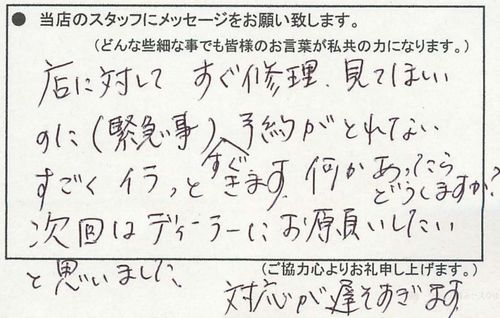 ● 当店のスタッフにメッセージをお願い致します。
(どんな些細な事でも皆様のお言葉が私共の力になります。)
店に対して すぐ修理、見てほしい
のに(緊急事) 予約がとれてない
すぐ
すごくイラっときます。何かあったら
どうしますか?
次回はディーラーにお願いしたい
と思いました。
(ご協力心よりお礼申し上げます。)
対応が遅すぎます